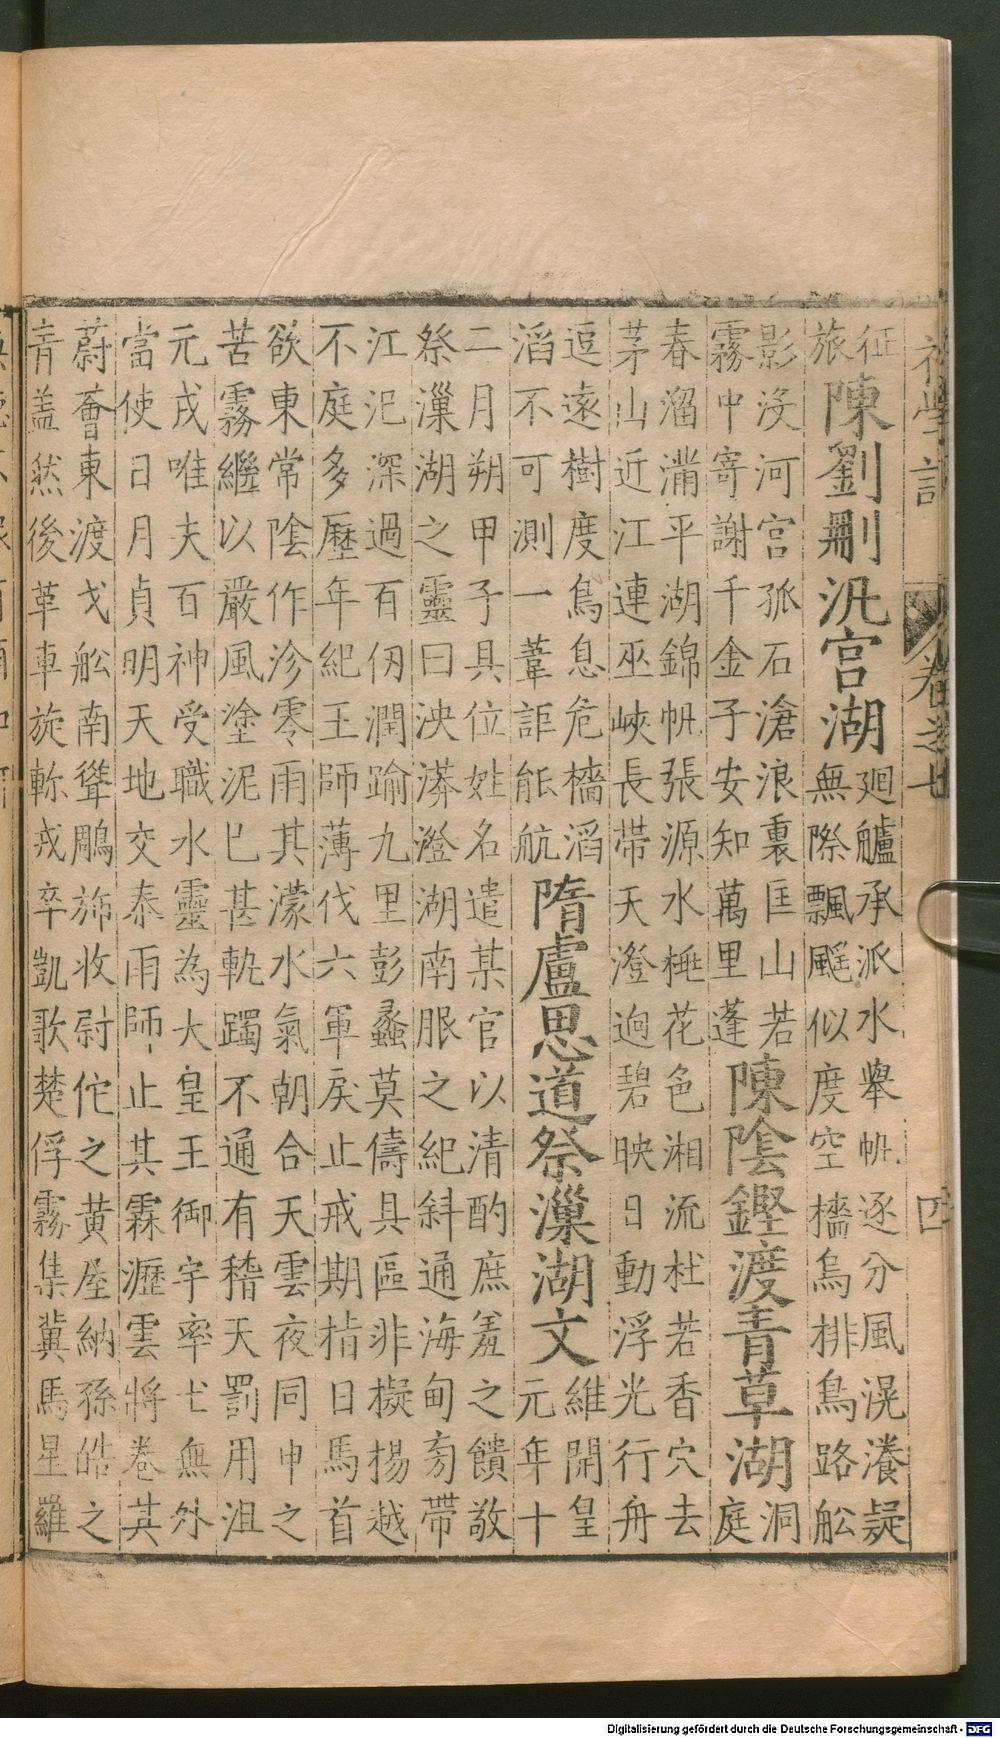 初學記 卷之七 四
征
旅
陳劉刪汎宮湖
廻艫承派水舉帆逐分風滉瀁疑
無際飄颻似度空檣烏排鳥路舩
影沒河宮孤石滄浪裏匡山若
霧中寄謝千金子安知萬里蓬
陳陰鏗渡青草湖
洞
庭
春溜滿平湖錦帆張源水桃花色湘流杜若香穴去
茅山近江連巫峽長帶天澄迥碧映日動浮光行舟
逗遠樹度鳥息危檣滔
滔不可測一葦詎能航
隋盧思道祭漅湖文
維開皇
元年十
二月朔甲子具位姓名遣某官以清酌庶羞之饋敬
祭漅湖之靈曰泱漭澄湖南服之紀斜通海甸旁帶
江汜深過百仞潤踰九里彭蠡莫儔具區非擬揚越
不庭多歷年紀王師薄伐六軍戾止戒期指日馬首
欲東常陰作沴零雨其濛水氣朝合天雲夜同申之
苦霧繼以嚴風塗泥已甚軌躅不通有稽天罰用沮
元戎唯夫百神受職水靈為大皇王御宇率土無外
當使日月貞明天地交泰雨師止其霖瀝雲將卷其
蔚薈東渡戈舩南聳鵰旆收尉佗之黃屋納孫皓之
青蓋然後革車旋軫戎卒凱歌楚俘霧集冀馬星羅
Digitalisierung gefördert durch die Deutsche Forschungsgemeinschaft - DFG